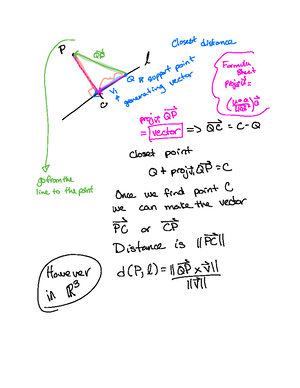 Closest distance
P
QP
l
Q is support point
V is
generating vector
C
Formula
Sheet
proj
(u·a)a
proj QP
= vector => QC = C - Q
go from the
line to the point
Closest point
Q + proj QP = C
Once we find point C
we can make the vector
PC or CP
Distance is ||PC||
However
in ℝ³
d(P, l) = ||QP × V||
||V||